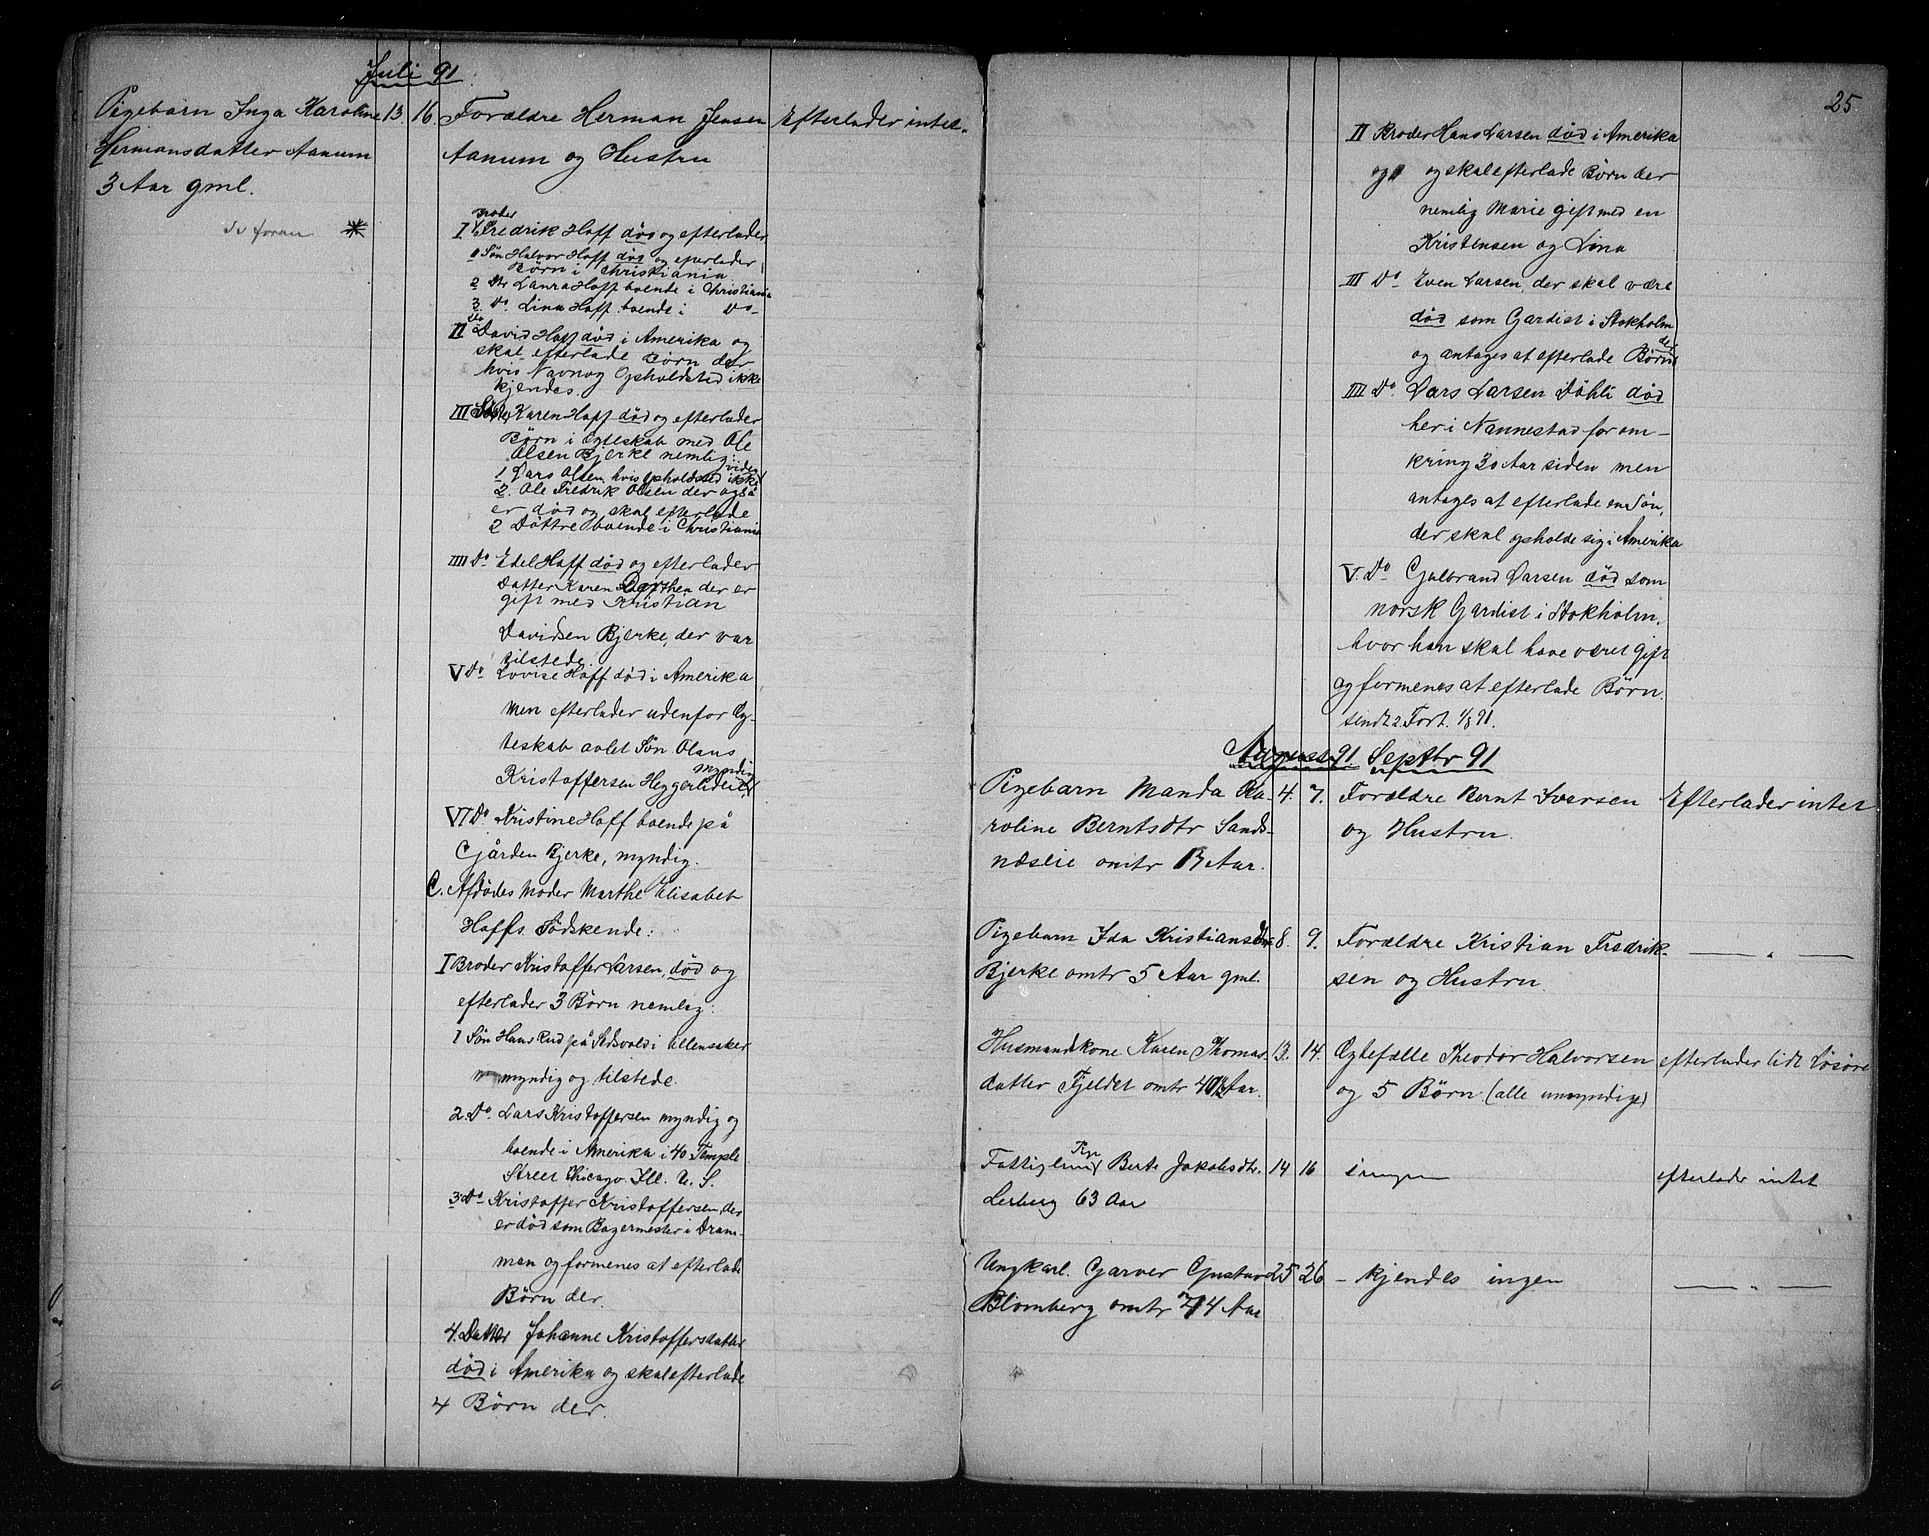 Juli 91.
Pigebarn Inga Karoline 13. 16. Forældre Herman Jensen Efterlader intet.
Hermansdatter Aanum Aanum og Hustru
3 Aar gml.
se foran *
Broder
I Fredrik Hoff död og efterlader
1 Sön Halvor Hoff död og efterlader
Börn i Christiania
2 Dtr Laura Hoff boende i Christiania
3. Do. Lina Hoff boende i Do-
Do
II David Hoff död i Amerika og
skal efterlade Börn der
hvis Navn og Opholdsted ikke
kjendes.
III Söster Karen Hoff död og efterlader
Börn i Egteskab med Ole
Olsen Bjerke nemlig:
1 Lars Olsen, hvis opholdsted ikke vides
2. Ole Fredrik Olsen der også
er död og skal efterlade
2 Döttre boende i Christiania
IIII Do Edel Hoff död og efterlader
Datter Karen Dorthea der er
gift med Kristian
Davidsen Bjerke, der var
tilstede.
V Do Lovise Hoff död i Amerika
men efterlader udenfor Eg-
teskab avlet Sön Olaus
Kristoffersen myndig
VI Do Kristine Hoff boende på
Gjården Bjerke, myndig.
C. Afdödes Moder Marthe Elisabet
Hoffs Södskende:
I Broder Kristoffer Larsen, död og
efterlader 3 Börn nemlig:
1 Sön Hans Rud på i Ullensaker
myndig og tilstede.
2. Do. Lars Kristoffersen myndig og
boende i Amerika i 40 Temple
Street Chicago Ill. U. S.
3. Do Kristoffer Kristoffersen, der
er död som Bagermester i Dram-
men og formenes at efterlade
Börn der.
4. Datter Johanne Kristoffersdatter
död i Amerika og skal efterlade
4 Börn der.
25
II Broder Hans Larsen död i Amerika
og og skal efterlade Börn der
nemlig Marie gift med en
Kristensen og Lina
III Do Even Larsen, der skal være
död som Gardist i Stokholm
og antages at efterlade Börn der
IIII Do. Lars Larsen Döhli död
her i Nannestad for om-
kring 30 Aar siden men
antages at efterlade en Sön,
der skal opholde sig i Amerika
V. Do Gulbrand Larsen död som
norsk Gardist i Stokholm,
hvor han skal have været gift
og formenes at efterlade Börn.
sendt 2. Fort. 1/8 91.
August 91. Septbr 91
Pigebarn Manda Ka- 4. 7. Forældre Bernt Iversen Efterlader intet
roline Berntsdtr Sands- og Hustru.
næseie omtr Aar.
Pigebarn Ida Kristiansdtr 8. 9. Forældre Kristian Fredrik- — " —
Bjerke omtr 5 Aar gml. sen og Hustru.
Husmandskone Karen Thomas- 13. 14. Egtefælle Theodor Halvorsen efterlader lidt Lösöre
datter Fjeldet omtr Aar. og 5 Börn (alle umyndige)
Fattiglem Pige Berte Jakobsdtr. 14 16 ingen efterlader intet
Lerberg 63 Aar
Ungkarl. Garver Gustav 25 26 – kjendes ingen — " —
Blomberg omtr 74 Aar